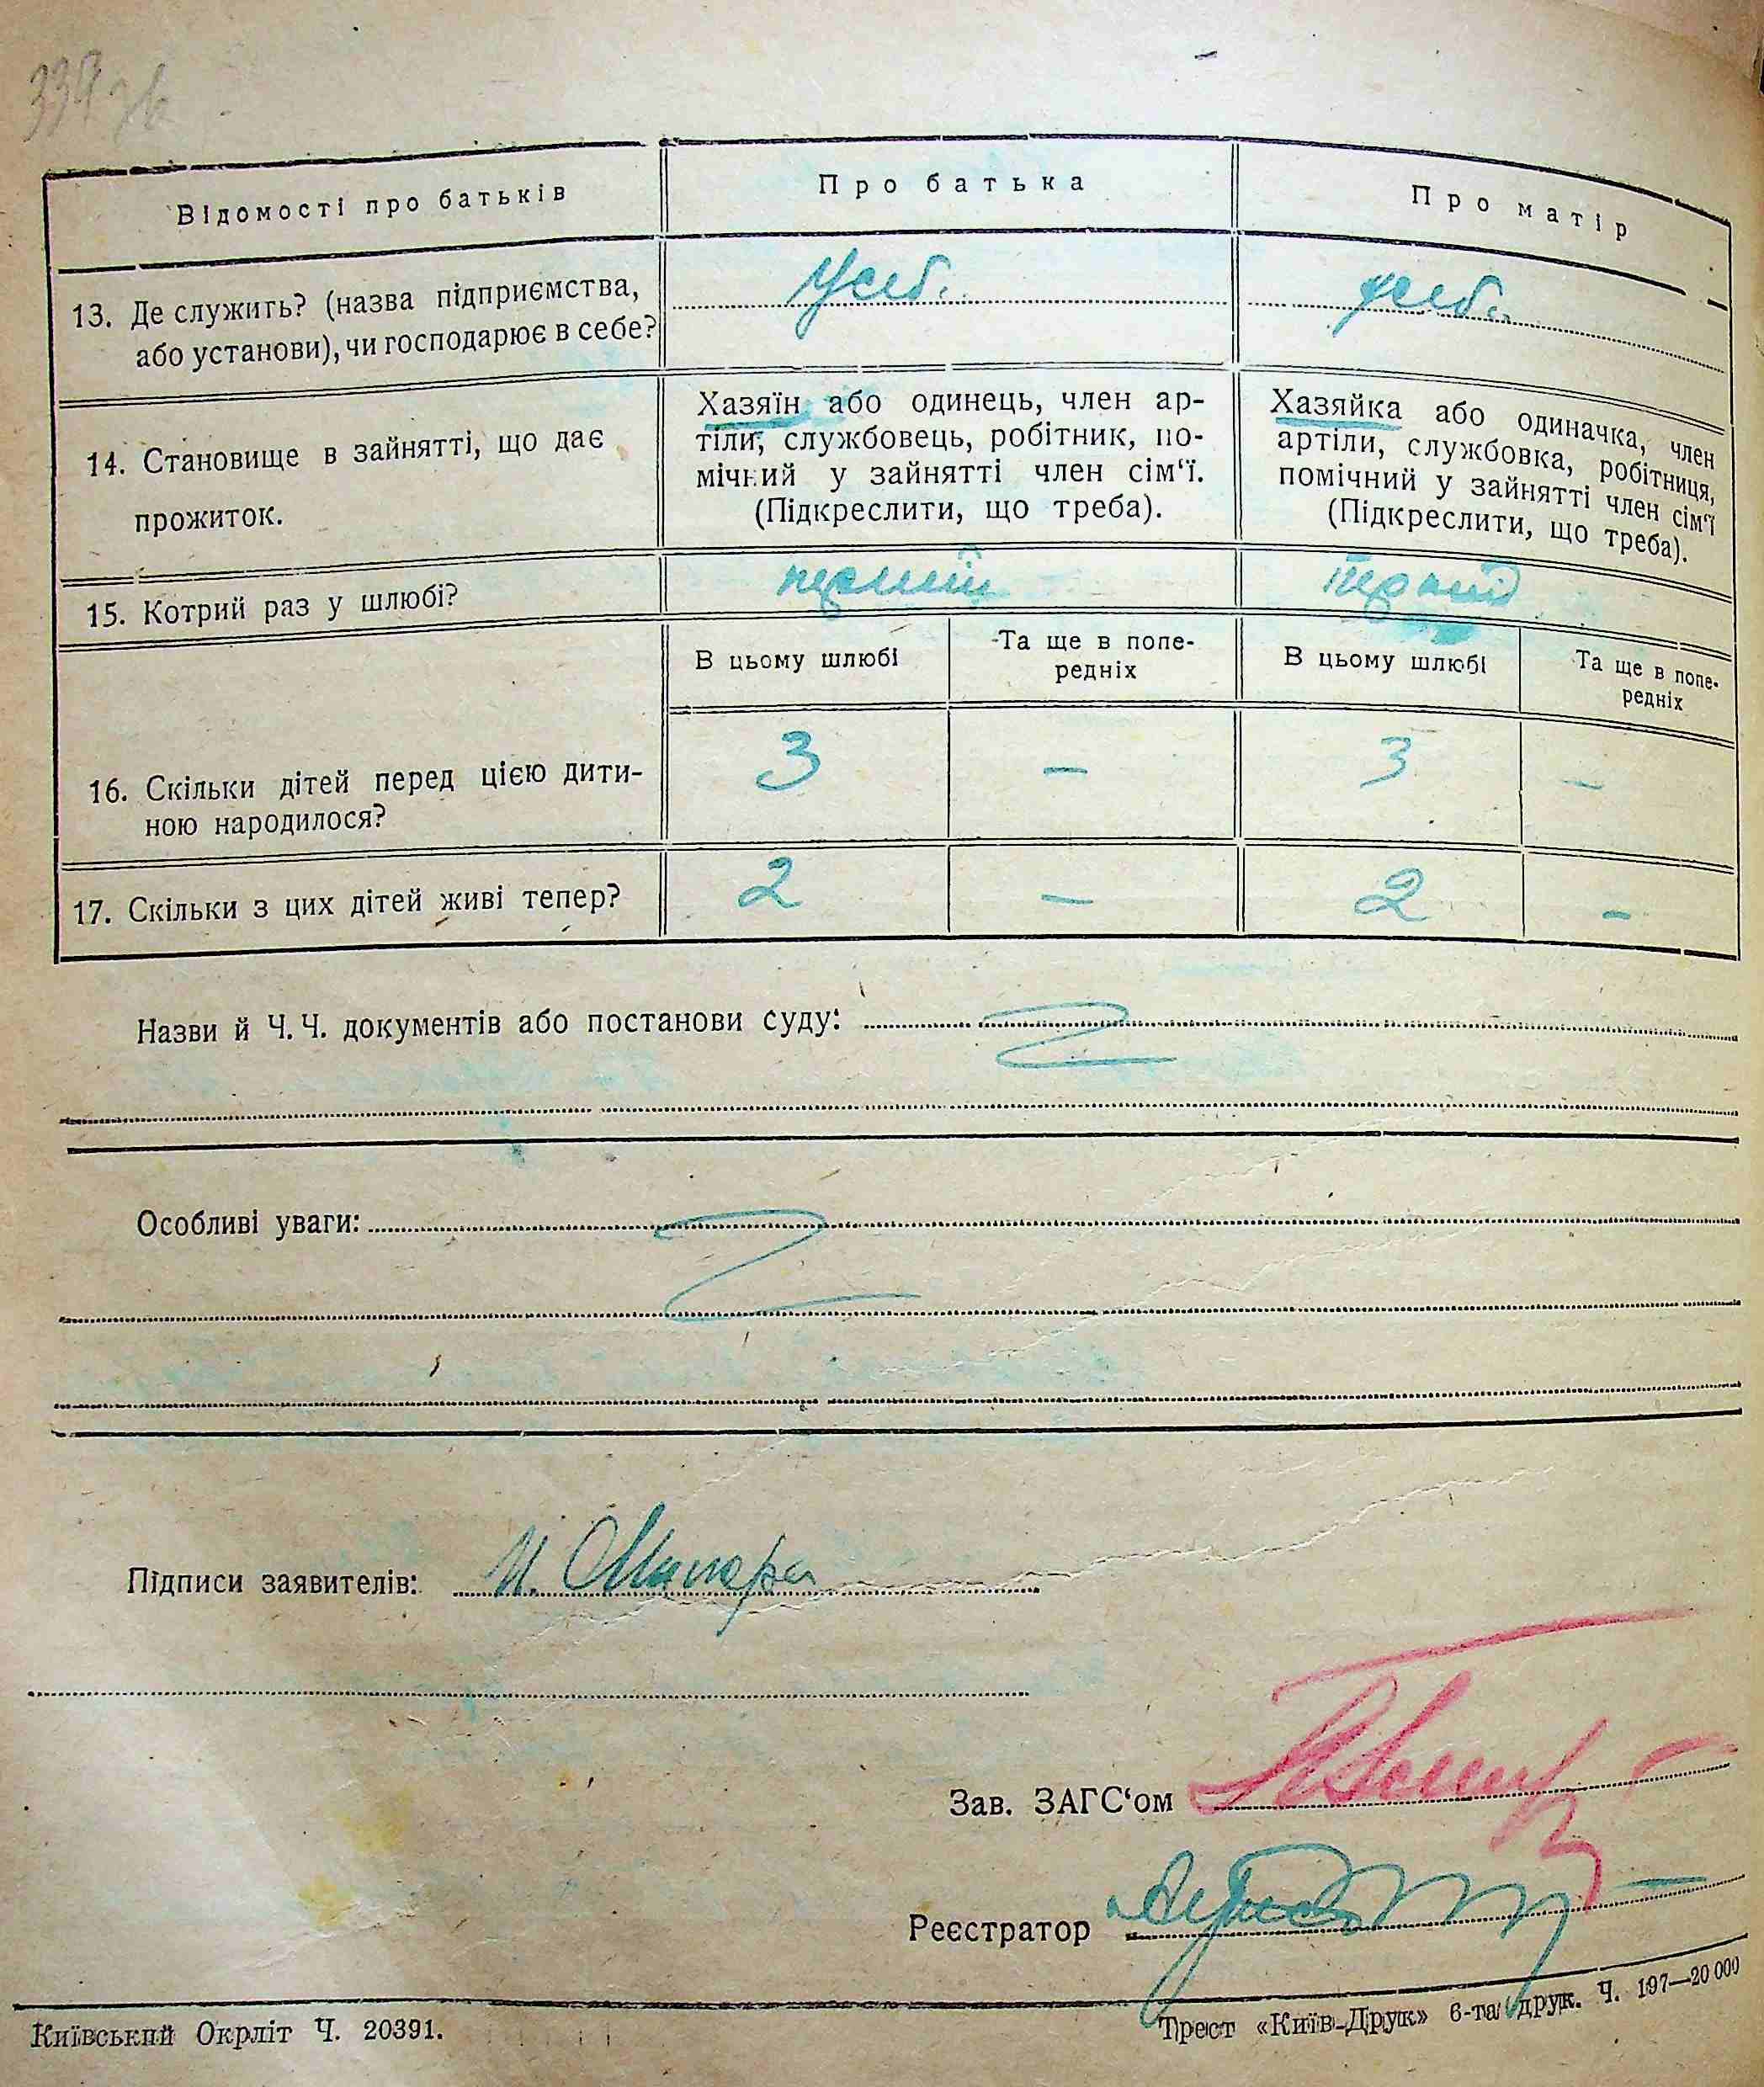 334 зв
Відомості про батьків
Про батька
Про матір
13. Де служить? (назва підприємства,
або установи), чи господарює в себе?
У себ.
у себ.
14. Становище в зайнятті, що дає
прожиток.
Хазяїн або одинець, член ар-
тіли, службовець, робітник, по-
мічний у зайнятті член сім‘ї.
(Підкреслити, що треба).
Хазяйка або одиначка, член
артіли, службовка, робітниця,
помічний у зайнятті член сім‘ї
(Підкреслити, що треба).
15. Котрий раз у шлюбі?
перший
Перший
В цьому шлюбі
Та ще в попе-
редніх
В цьому шлюбі
Та ще в попе-
редніх
16. Скільки дітей перед цією дити-
ною народилося?
3 — 3 —
17. Скільки з цих дітей живі тепер?
2 — 2 —
Назви й Ч. Ч. документів або постанови суду:
Особливі уваги:
Підписи заявителів:
Зав. ЗАГС‘ом
Реєстратор
Київський Окрліт Ч. 20391.
Трест «Київ-Друк» 6-та друк. Ч. 197—20 000